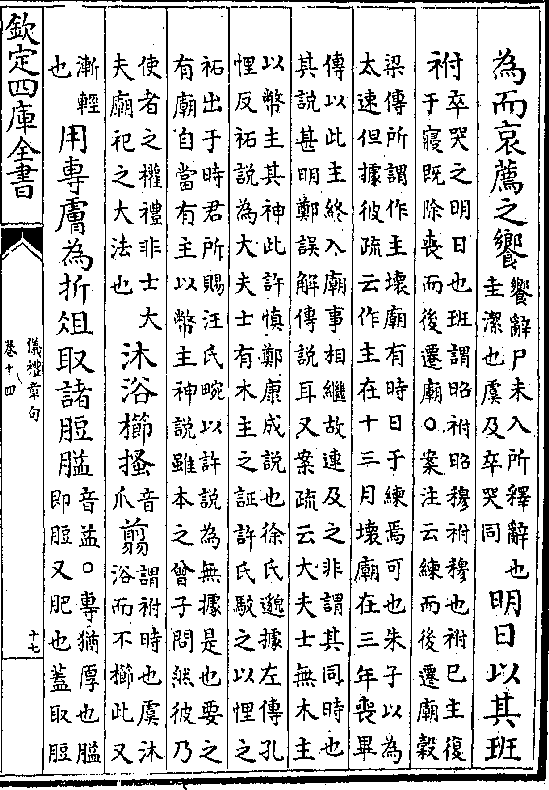 為而哀薦之饗饗辭尸未入所釋辭也圭潔也虞及卒哭同明日以其班
祔卒哭之明日也班謂昭祔昭穆祔穆也祔已主復于寢既除喪而後遷廟○案注云練而後遷廟榖
梁傳所謂作主壞廟有時日于練焉可也朱子以為太速但據彼疏云作主在十三月壞廟在三年喪畢
傳以此主終入廟事相繼故連及之非謂其同時也其說甚明鄭誤解傳說耳又案疏云大夫士無木主
以幣主其神此許慎鄭康成說也徐氏邈據左傳孔悝反祏說為大夫士有木主之証許氏駁之以悝之
祏出于時君所賜汪氏畹以許說為無據是也要之有廟自當有主以幣主神說雖本之曾子問然彼乃
使者之權禮非士大夫廟祀之大法也沐浴櫛搔音爪翦謂祔時也虞沐浴而不櫛此又
漸輕也用專膚為折俎取諸脰膉音益○專猶厚也膉即脰又肥也蓋取脰
欽定四庫全書
儀禮章句
卷十四
十七